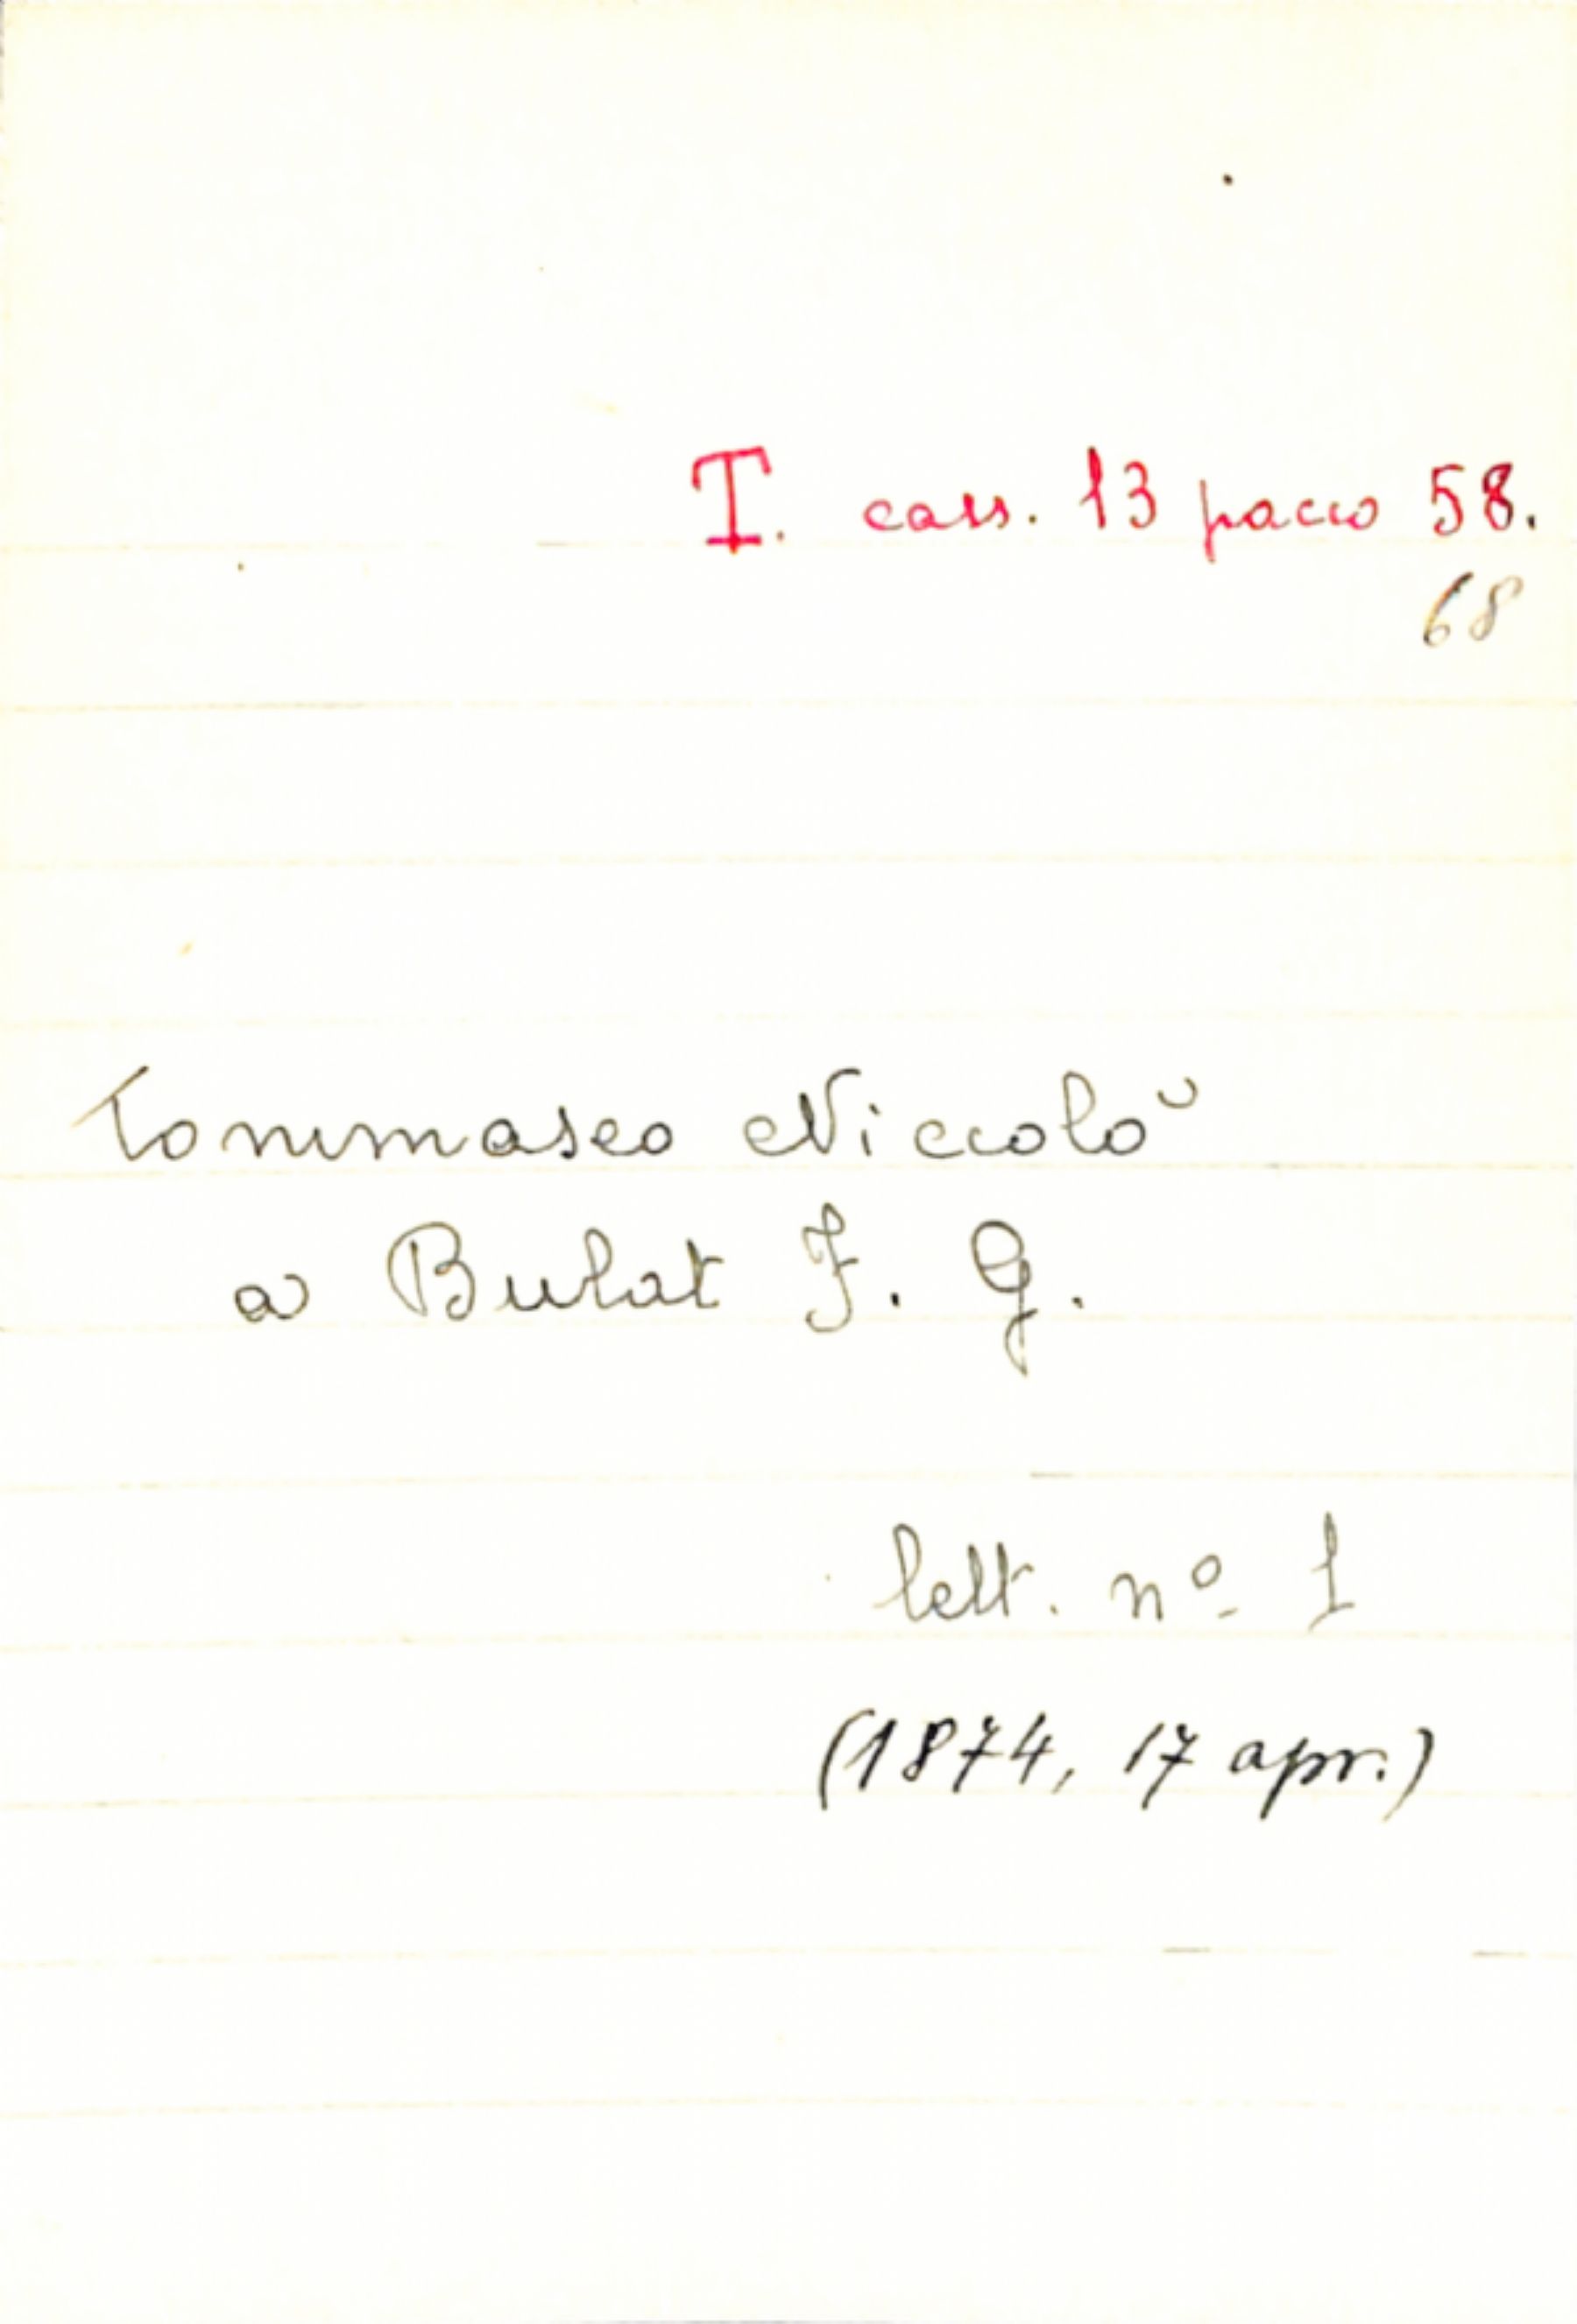 T. cass. 13 pacco 58.
68
Tommaseo Niccolò
a Bulat F. G.
lett. nº 1
(1874, 17 apr.)